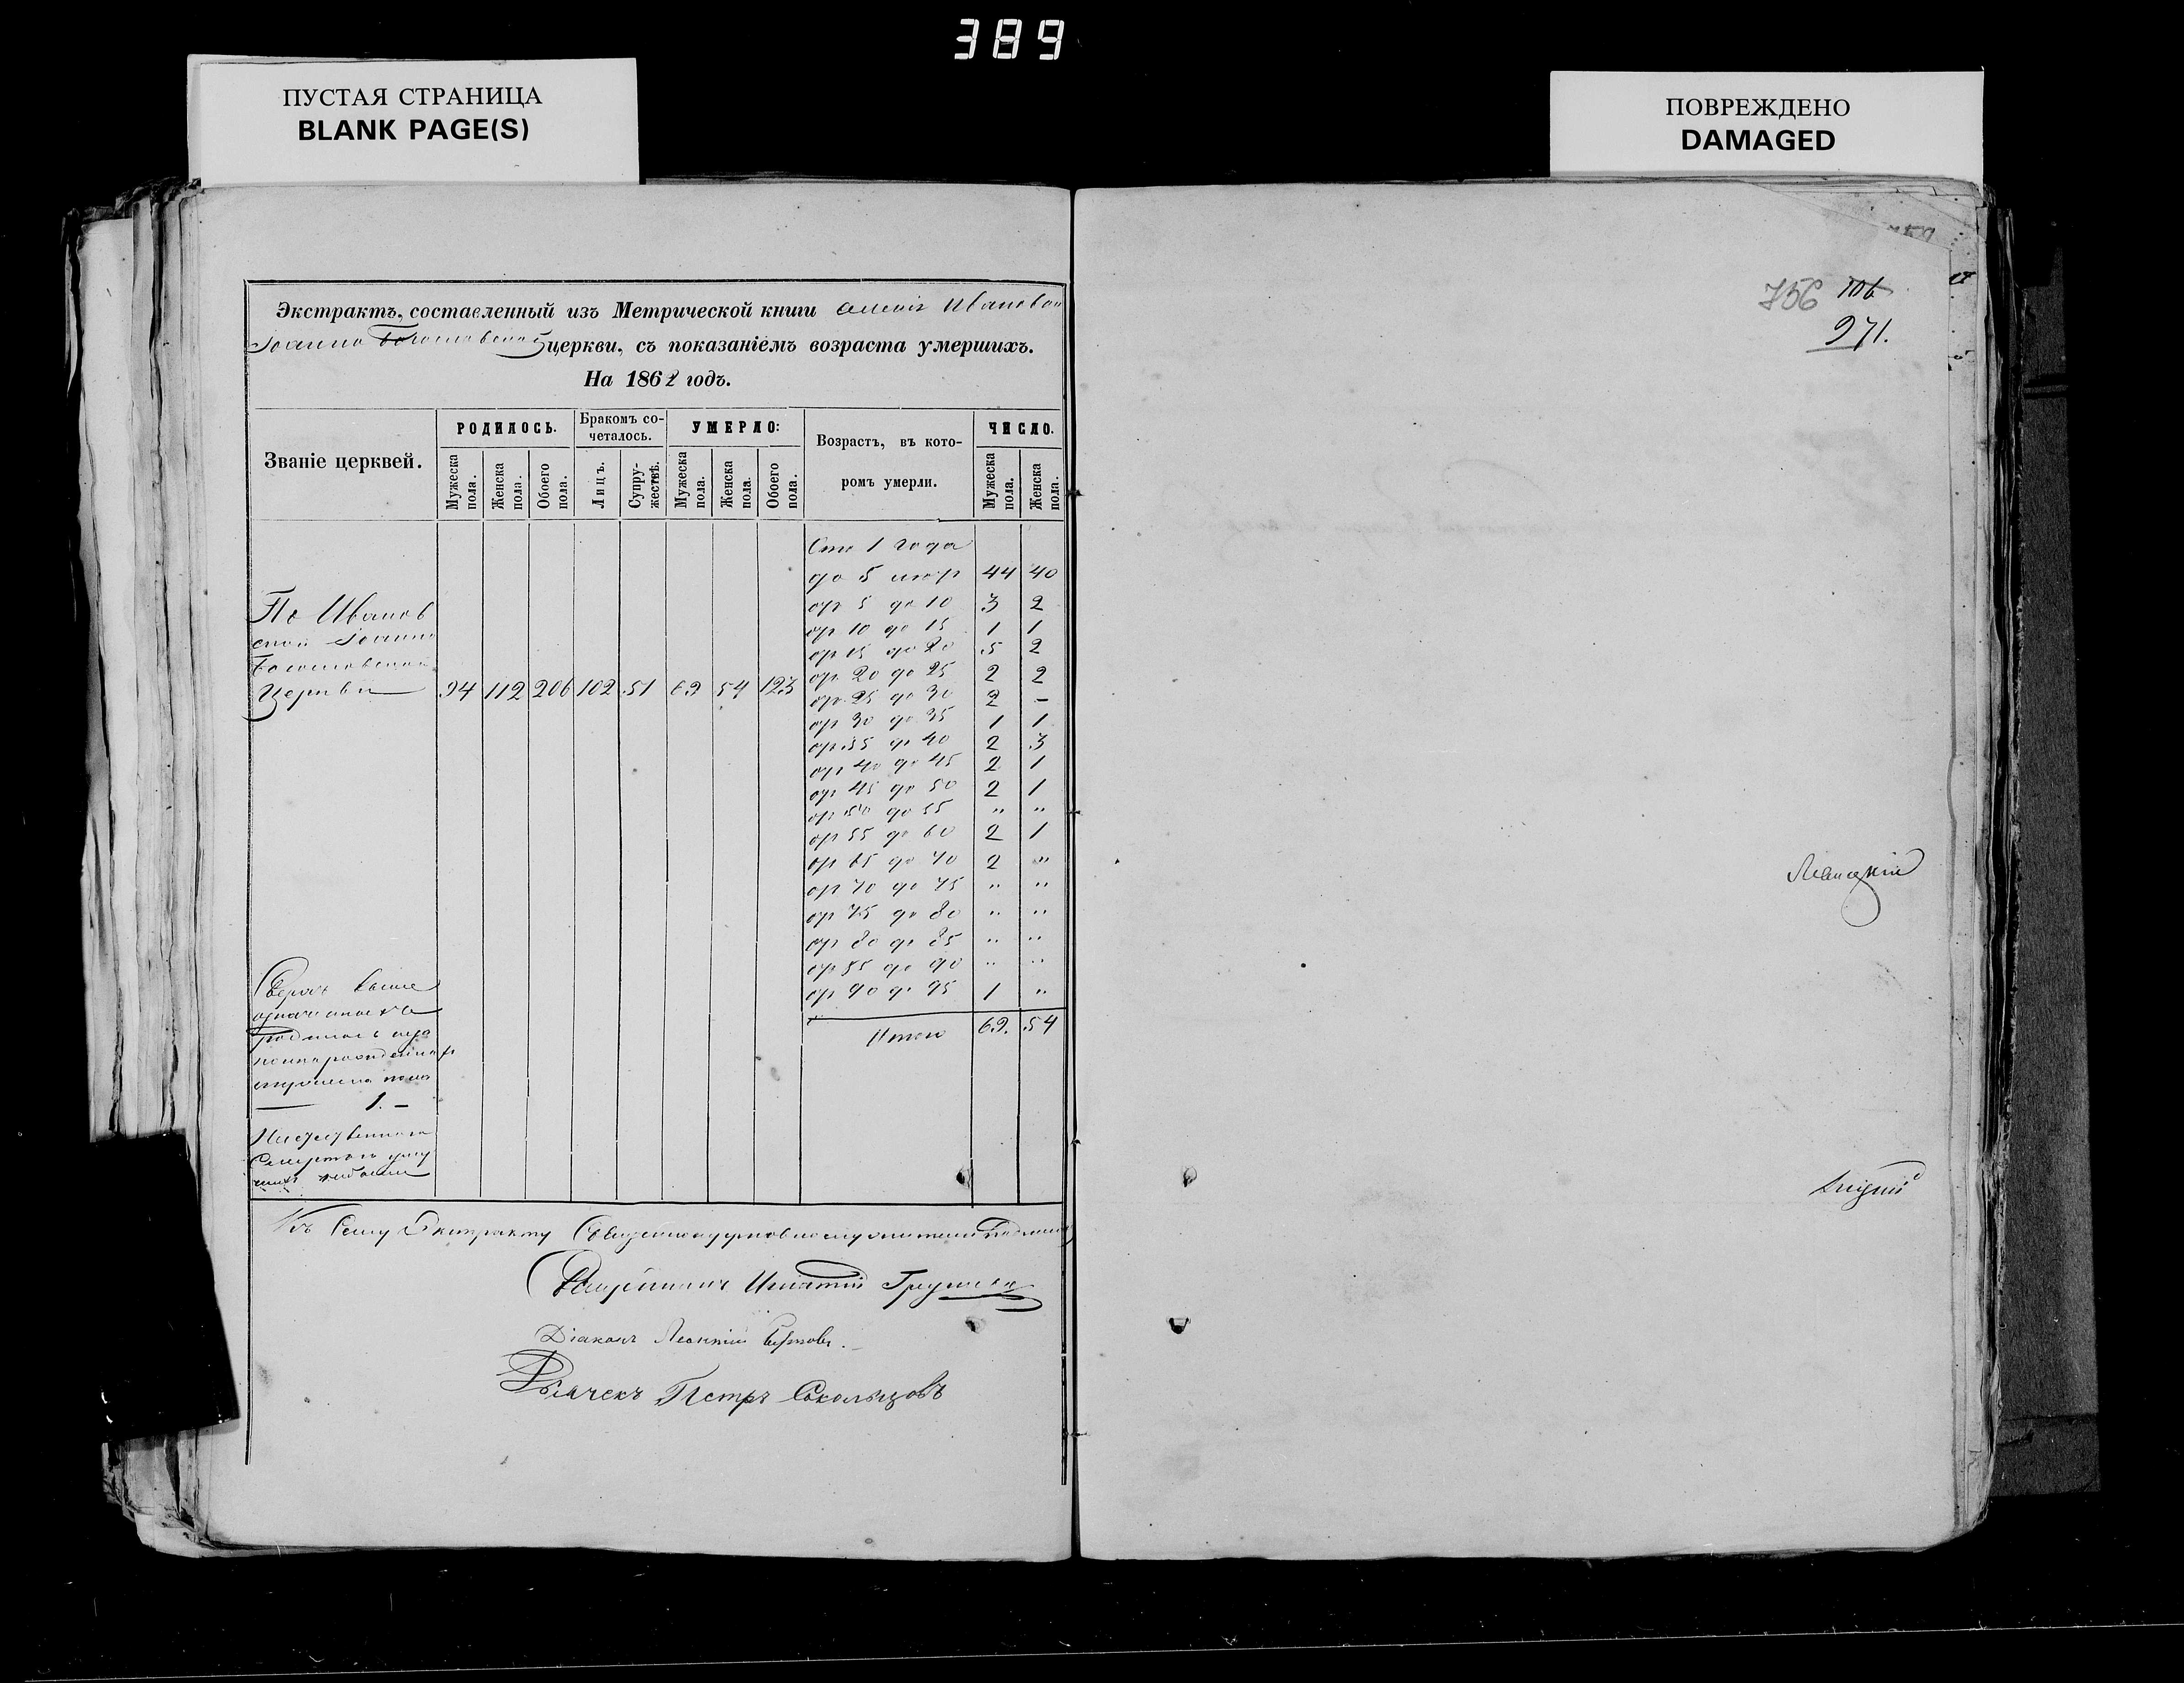 389
ПУСТАЯ СТРАНИЦА
BLANK PAGE(S)
ПОВРЕЖДЕНО
DAMAGED
Экстрактъ, составленный изъ Метрической книги Ивановской
Іоанно Богословской церкви, съ показаніемъ возраста умершихъ.
На 1862 годъ.
Званіе церквей.
РОДИЛОСЬ.
Бракомъ со-
четалось.
УМЕРЛО:
Возрастъ, въ кото-
ромъ умерли.
ЧИСЛО.
Мужеска пола.
Женска пола.
Обоего пола.
Лицъ.
Супру-
жествъ.
Мужеска пола.
Женска пола.
Обоего пола.
Мужеска пола.
Женска пола.
По Иванов
ской Іоанно
Богословской
Церкви 94 112 206 102 51 69 54 123
Отъ 1 года
до 5 44 40
от 5 до 10 3 2
от 10 до 15 1 1
от 15 до 20 5 2
от 20 до 25 2 2
от 25 до 30 2 –
от 30 до 35 1 1
от 35 до 40 2 3
от 40 до 45 2 1
от 45 до 50 2 1
от 50 до 55 " "
от 55 до 60 2 1
от 65 до 70 2 "
от 70 до 75 " "
от 75 до 80 " "
от 80 до 85 " "
от 85 до 90 " "
от 90 до 95 1 "
Итого 69. 54
Сверхъ выше
1. –
Къ сему Экстракту
Священникъ Игнатій
Діаконъ Леонтій
Дьячекъ Петръ Сокольцовъ
756 106
971.